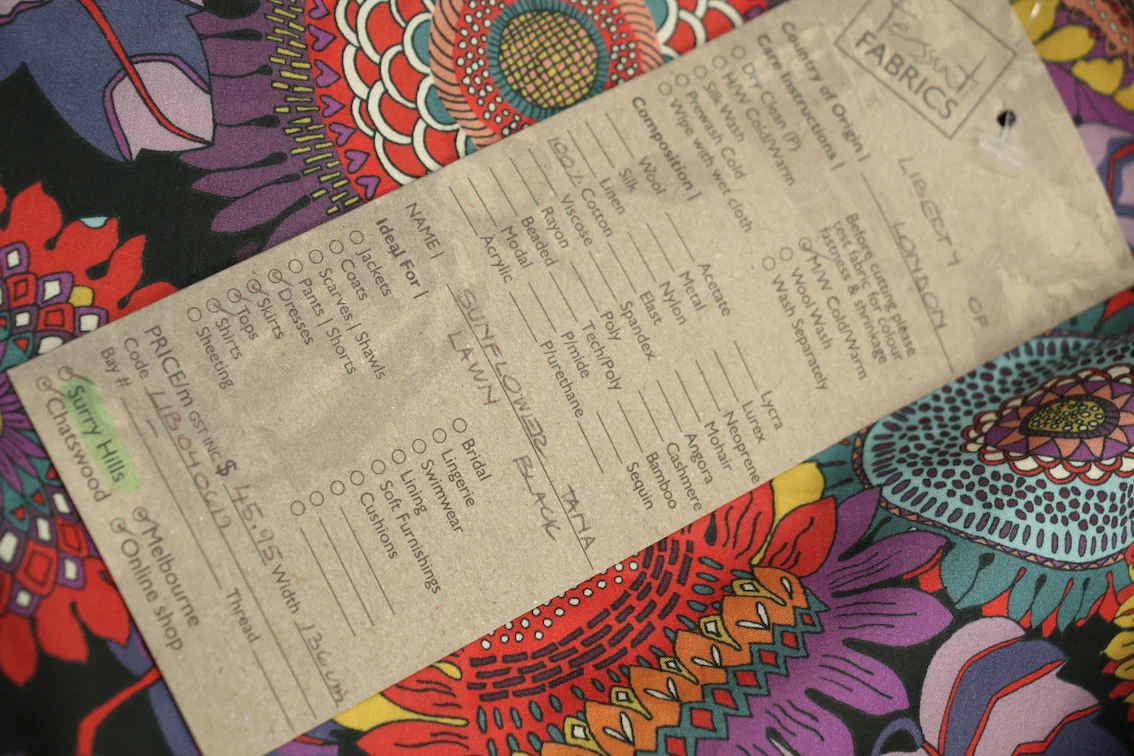 Tessuti
FABRICS
Country of Origin | LIBERTY OF
LONDON
Care Instructions |
Dry Clean (P)
H/W Cold/Warm
Silk Wash
Prewash Cold
Wipe with wet cloth
Before cutting please
test fabric for colour
fastness & shrinkage
M/W Cold/Warm
Wool Wash
Wash Separately
Composition |
Wool
Silk
Linen
100% Cotton
Viscose
Rayon
Beaded
Modal
Acrylic
Acetate
Metal
Nylon
Elast
Spandex
Poly
Tech/Poly
P/mide
P/urethane
Lycra
Lurex
Neoprene
Mohair
Angora
Cashmere
Bamboo
Sequin
NAME | SUNFLOWER TANA
LAWN BLACK
Ideal For |
Jackets
Coats
Scarves | Shawls
Pants | Shorts
Dresses
Skirts
Tops
Shirts
Sheeting
Bridal
Lingerie
Swimwear
Lining
Soft Furnishings
Cushions
PRICE/m GST INC $ 45.95 Width 136cm
Code LIB040617
Bay # Thread
Surry Hills
Chatswood
Melbourne
Online shop